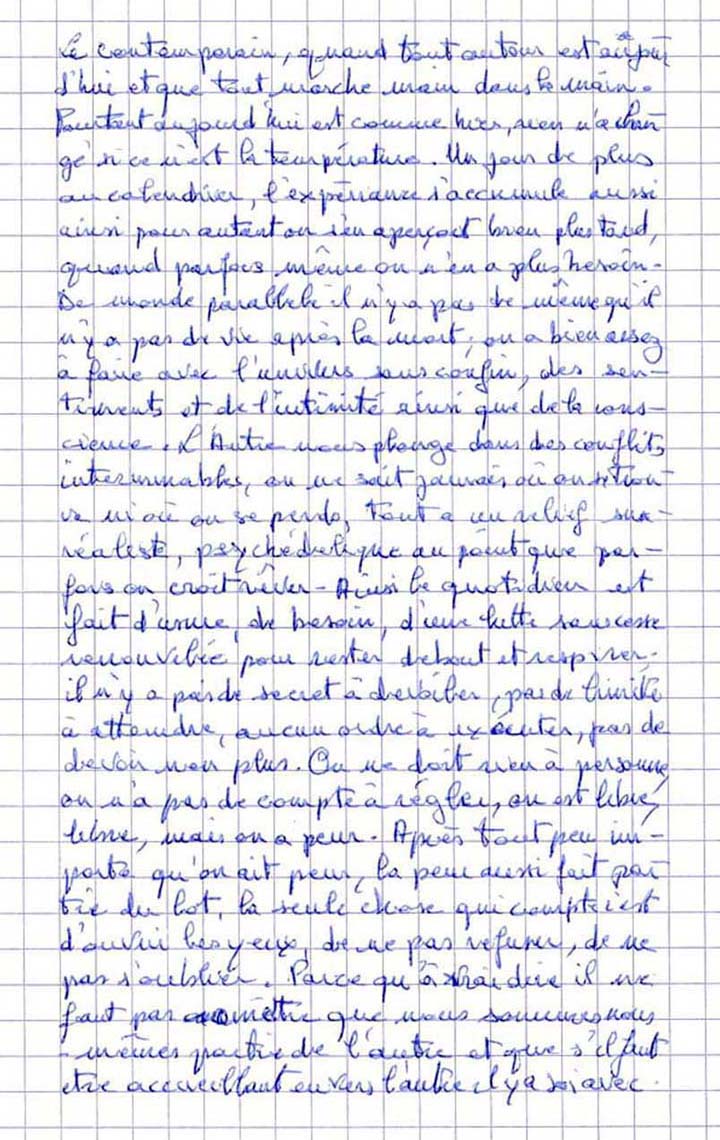 Le contemporain, quand tout autour est aujour
d'hui et que tout marche main dans la main.
Pourtant aujourd'hui est comme hier, rien n'a chan
gé si ce n'est la température. Un jour de plus
au calendrier, l'expérience s'accumule aussi
ainsi pour autant on s'en aperçoit bien plus tard,
quand parfois même on n'en a plus besoin.
De monde parallèle il n'y a pas de même qu'il
n'y a pas de vie après la mort, on a bien assez
à faire avec l'univers sans confin, des sen-
timents et de l'intimité ainsi que de la cons-
cience. L'Autre nous plonge dans des conflits
interminables, on ne sait jamais où on se trou-
ve ni où on se perd, tout a un relief sur-
réaliste, psychédélique au point que par-
fois on croit rêver - Ainsi le quotidien est
fait d'usure, de besoin, d'une lutte sans cesse
renouvelée pour rester debout et respirer.
il n'y a pas de secret à dévoiler, pas de limite
à attendre, aucun ordre à exécuter, pas de
devoir non plus. On ne doit rien à personne,
on n'a pas de compte à régler, on est libre,
libre, mais on a peur. Après tout peu im-
porte qu'on ait peur, la peur aussi fait par
tie du lot, la seule chose qui compte c'est
d'ouvrir les yeux, de ne pas refuser, de ne
pas s'oublier. Parce qu'à vrai dire il ne
faut pas omettre que nous sommes nous
-mêmes partie de l'autre et que s'il faut
être accueillant envers l'autre il y a soi avec.